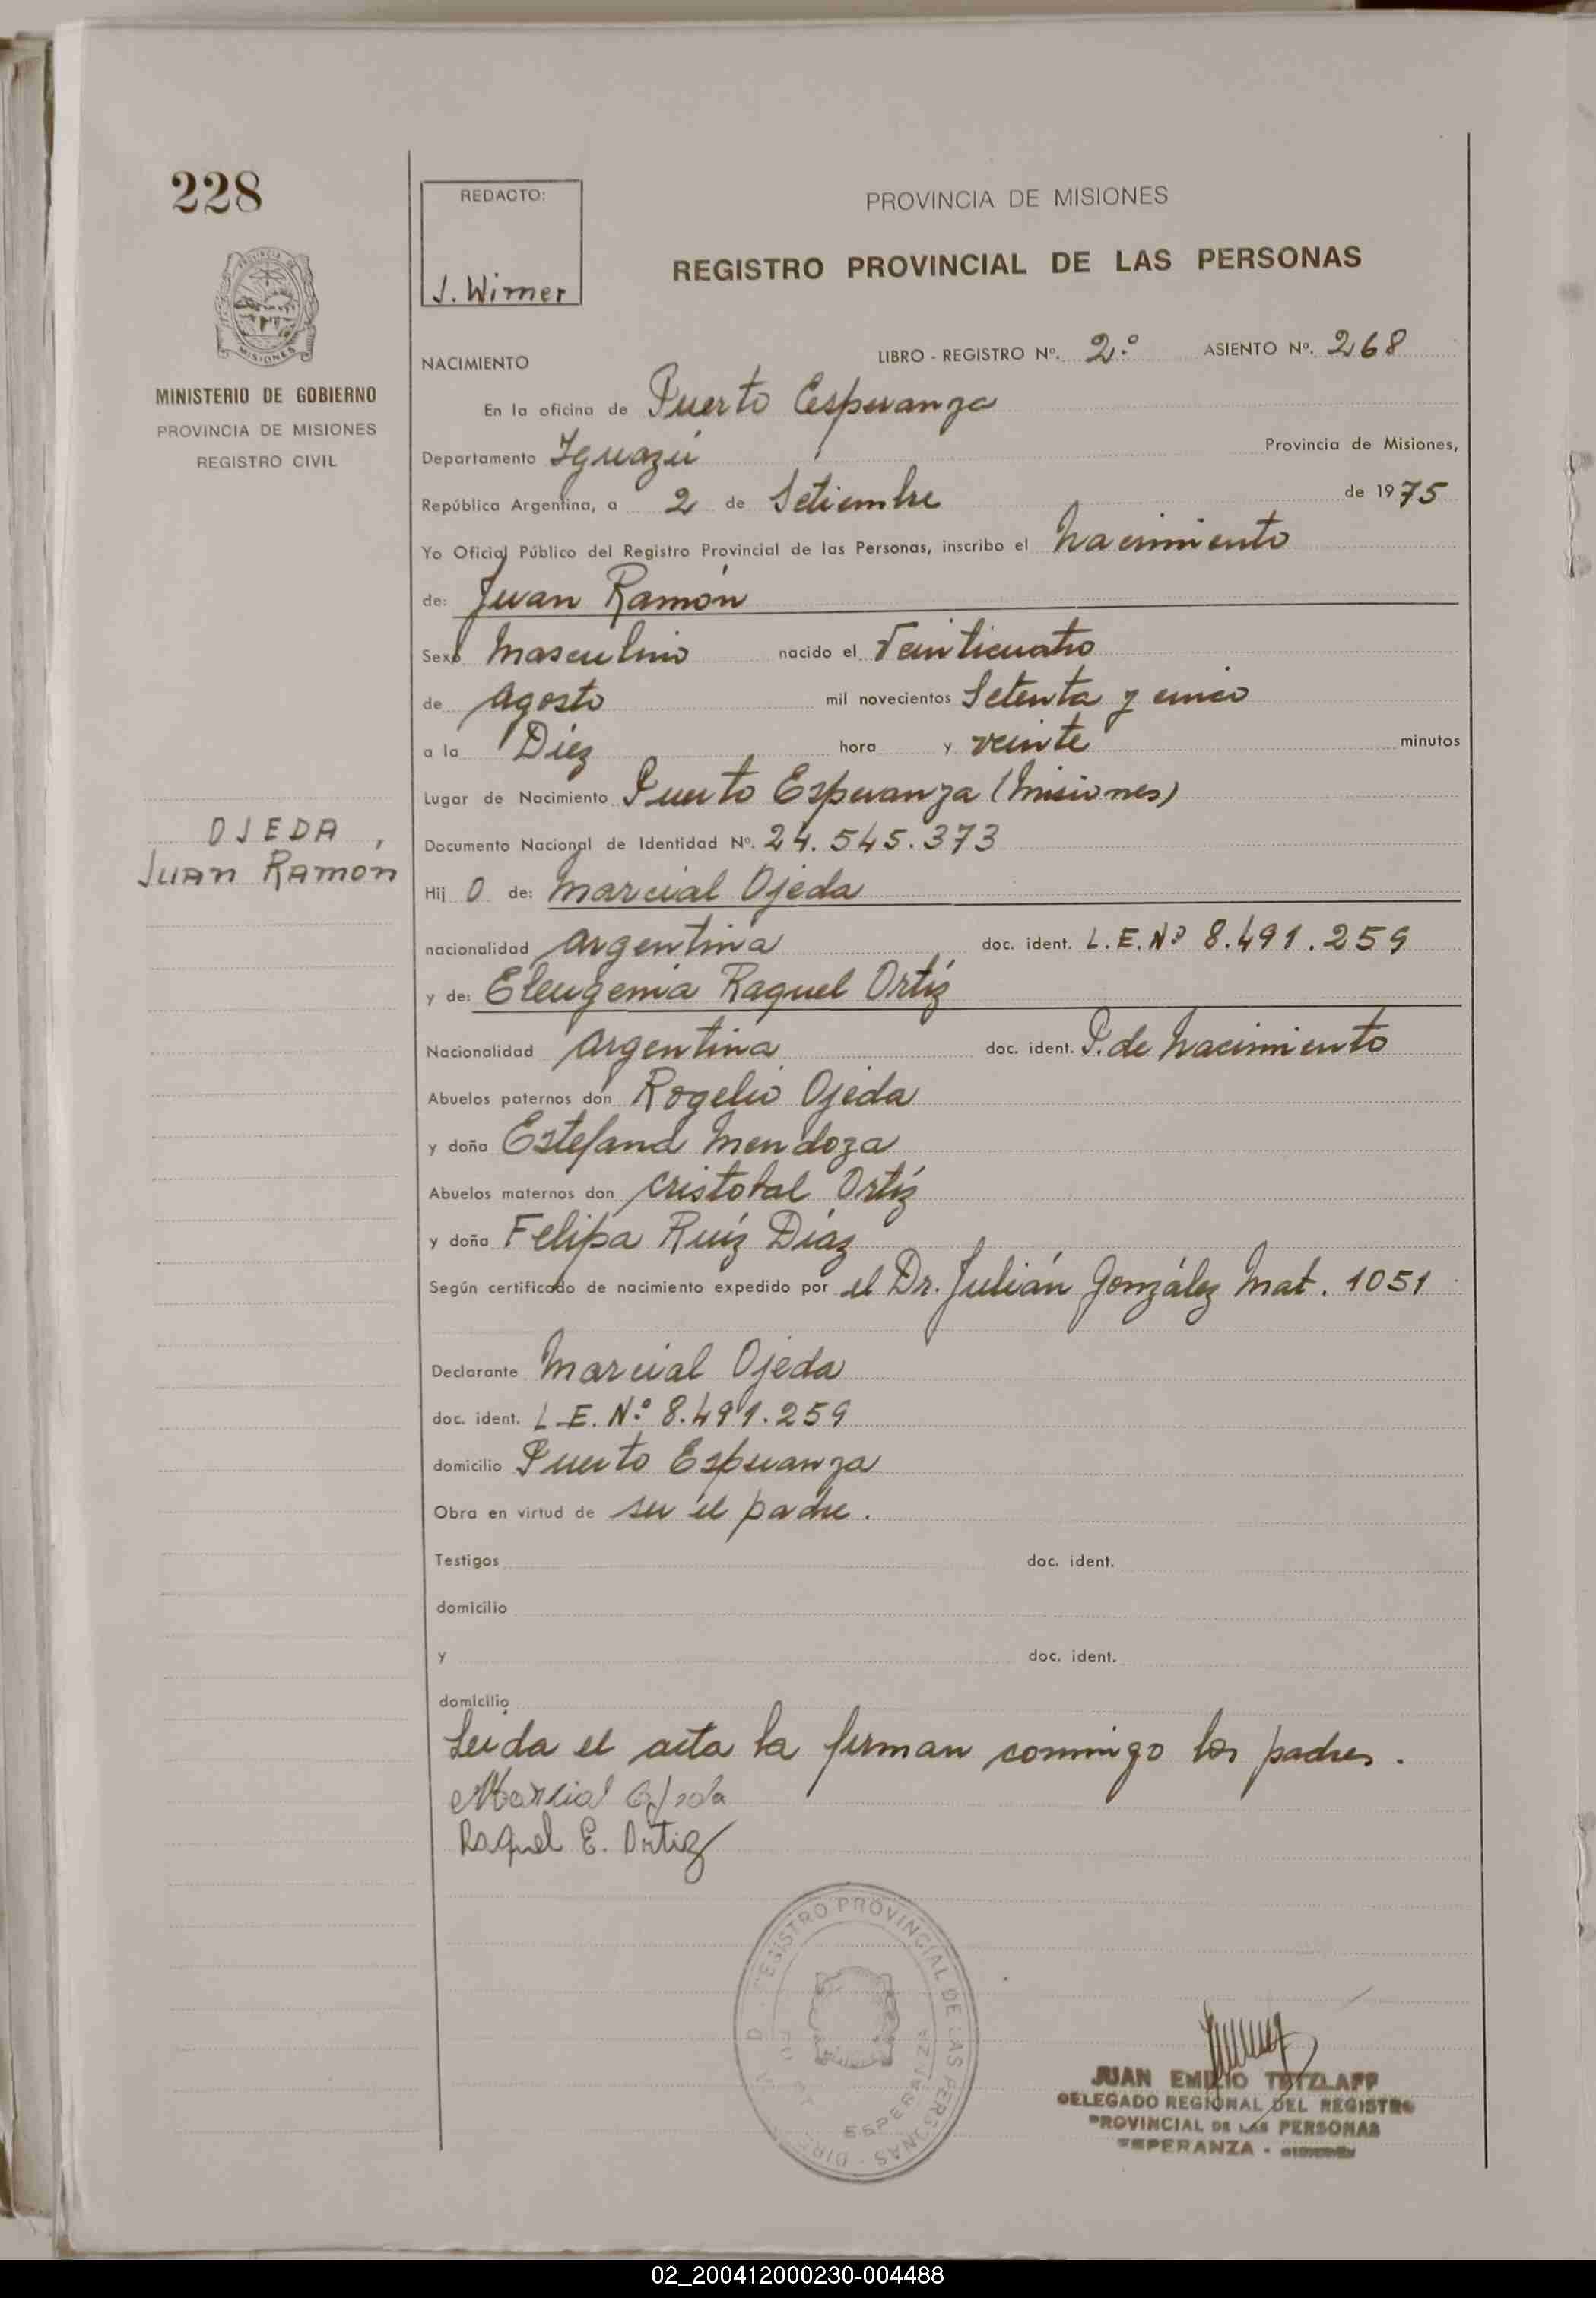 228
MISIONES
MINISTERIO DE GOBIERNO
PROVINCIA DE MISIONES
REGISTRO CIVIL
OJEDA,
Juan Ramón
REDACTO:
J. Wirner
PROVINCIA DE MISIONES
REGISTRO PROVINCIAL DE LAS PERSONAS
NACIMIENTO LIBRO - REGISTRO Nº. 2º ASIENTO Nº. 268
En la oficina de Puerto Esperanza
Departamento Iguazú Provincia de Misiones,
República Argentina, a 2 de Setiembre de 1975
Yo Oficial Público del Registro Provincial de las Personas, inscribo el Nacimiento
de: Juan Ramón
Sexo Masculino nacido el Veinticuatro
de Agosto mil novecientos Setenta y cinco
a la Diez hora y veinte minutos
Lugar de Nacimiento Puerto Esperanza (Misiones)
Documento Nacional de Identidad Nº. 24.545.373
Hij O de: Marcial Ojeda
nacionalidad Argentina doc. ident. L.E.Nº 8.491.259
y de: Eleugenia Raquel Ortíz
Nacionalidad Argentina doc. ident. P. de Nacimiento
Abuelos paternos don Rogelio Ojeda
y doña Estefana Mendoza
Abuelos maternos don Cristobal Ortíz
y doña Felipa Ruíz Díaz
Según certificado de nacimiento expedido por el Dr. Julián González Mat. 1051
Declarante Marcial Ojeda
doc. ident. L.E. Nº 8.491.259
domicilio Puerto Esperanza
Obra en virtud de ser el padre.
Testigos doc. ident.
domicilio
y doc. ident.
domicilio
Leida el acta la firman conmigo los padres.
Marcial Ojeda
Raquel E. Ortiz
REGISTRO PROVINCIAL DE LAS PERSONAS
ESPERANZA
JUAN EMILIO TETZLAFF
DELEGADO REGIONAL DEL REGISTRO
PROVINCIAL DE LAS PERSONAS
ESPERANZA -
02_200412000230-004488